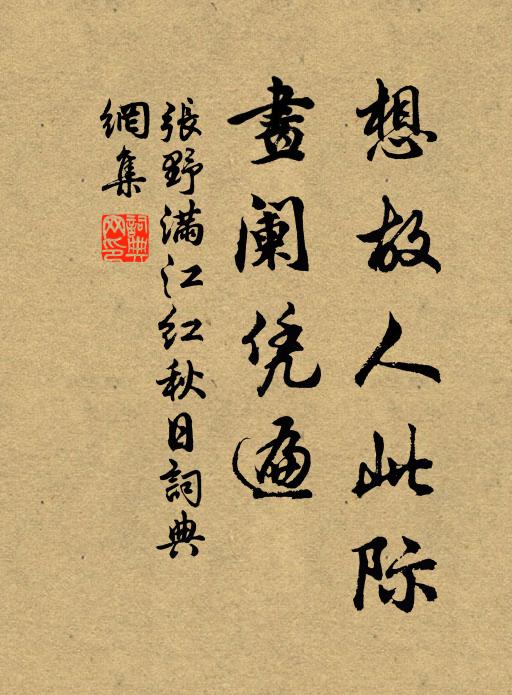 想故人此际
畫阑凭遍
張野满江红秋日詞典
網集
詞典网印